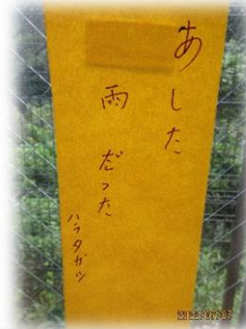 あした
雨だった
ハラタガツ